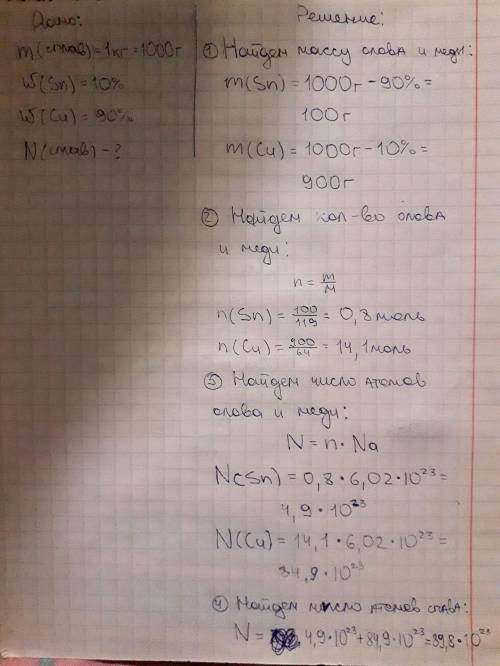 Дано:
m(сплав)=1кг=1000г
W(Sn)=10%
W(Cu)=90%
N(сплав)-?
Решение:
① Найдем массу олова и меди:
m(Sn) = 1000г-90%=
100г
m(Cu) = 1000г-10%=
900г
② Найдем кол-во олова
и меди:
n = m/M
n(Sn) = 100/119 = 0,8 моль
n(Cu) = 900/64 = 14,1 моль
③ Найдем число атомов
олова и меди:
N = n · Na
N(Sn) = 0,8 · 6,02 · 10²³ =
4,9 · 10²³
N(Cu) = 14,1 · 6,02 · 10²³ =
84,9 · 10²³
④ Найдем число атомов сплава:
N = 4,9·10²³+84,9·10²³=89,8·10²³